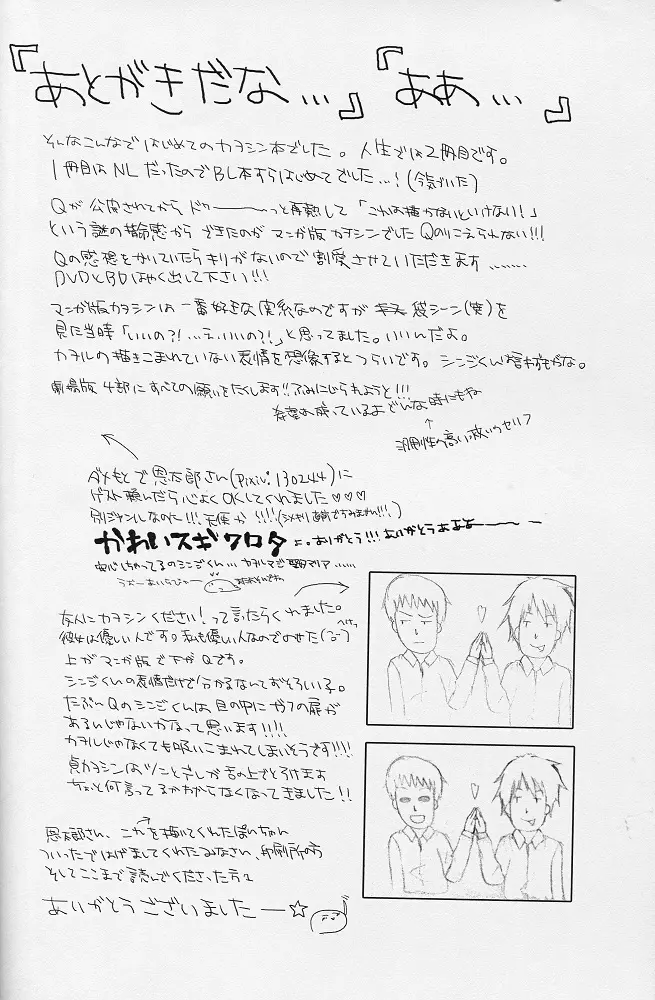 『あとがきだな…』『ああ…』
そんなこんなではじめてのカヲシン本でした。人生では2冊目です。
1冊目はNLだったのでBL本すらはじめてでした…!(今気づいた)
Qが公開されてからドゥーーーっと再熱して「これは描かないといけない!」
という謎の焦燥感からできたのがマンガ版カヲシンでした Qのりこえられない!!!
Qの感想をかいていたらキリがないので割愛させていただきます……
DVDとBDはやく出して下さい!!!
マンガ版カヲシンは一番好きな実糸なのですがキス袋シーン(笑)を
見た当時「いいの?!…え、いいの?!」と思ってました。いいんだよ。
カヲルの描きこまれていない表情を想像するとつらいです。シンジくん
劇場版4部にすべての願いをたくします!!ふみにじられようと!!!
希望は残っているよどんな時にもね
↑
汎用性の高い救いのセリフ
ダメもとで恩太郎さん(pixiv:130244)に
ゲスト頼んだら心よくOKしてくれました♡♡♡
別ジャンルなのに!!!天使か!!!!(シメキリ直前ですみません!!!)
かわいスギワロタ …ありがとう!!!ありがとうあああーーー
安心しちゃってるのシンジくん…カヲルマジ聖母マリア……
友人にカヲシンください!って言ったらくれました。
彼女は優しい人です。私も優しい人なのでのせた
上がマンガ版で下がQです。
シンジくんの表情だけで分かるなんておそろしい子。
たぶんQのシンジくんは目の中にガフの扉が
あるんじゃないかなって思います!!!!
カヲルじゃなくても吸いこまれてしまいそうです!!!
貞カヲシンはツンとデレが舌の上でとろけます
ちょっと何言ってるかわからなくなってきました!!
恩太郎さん、これを描いてくれたぽいちゃん
ついったではげましてくれたみなさん、印刷所の方
そしてここまで読んでくださった方々
ありがとうございましたー☆